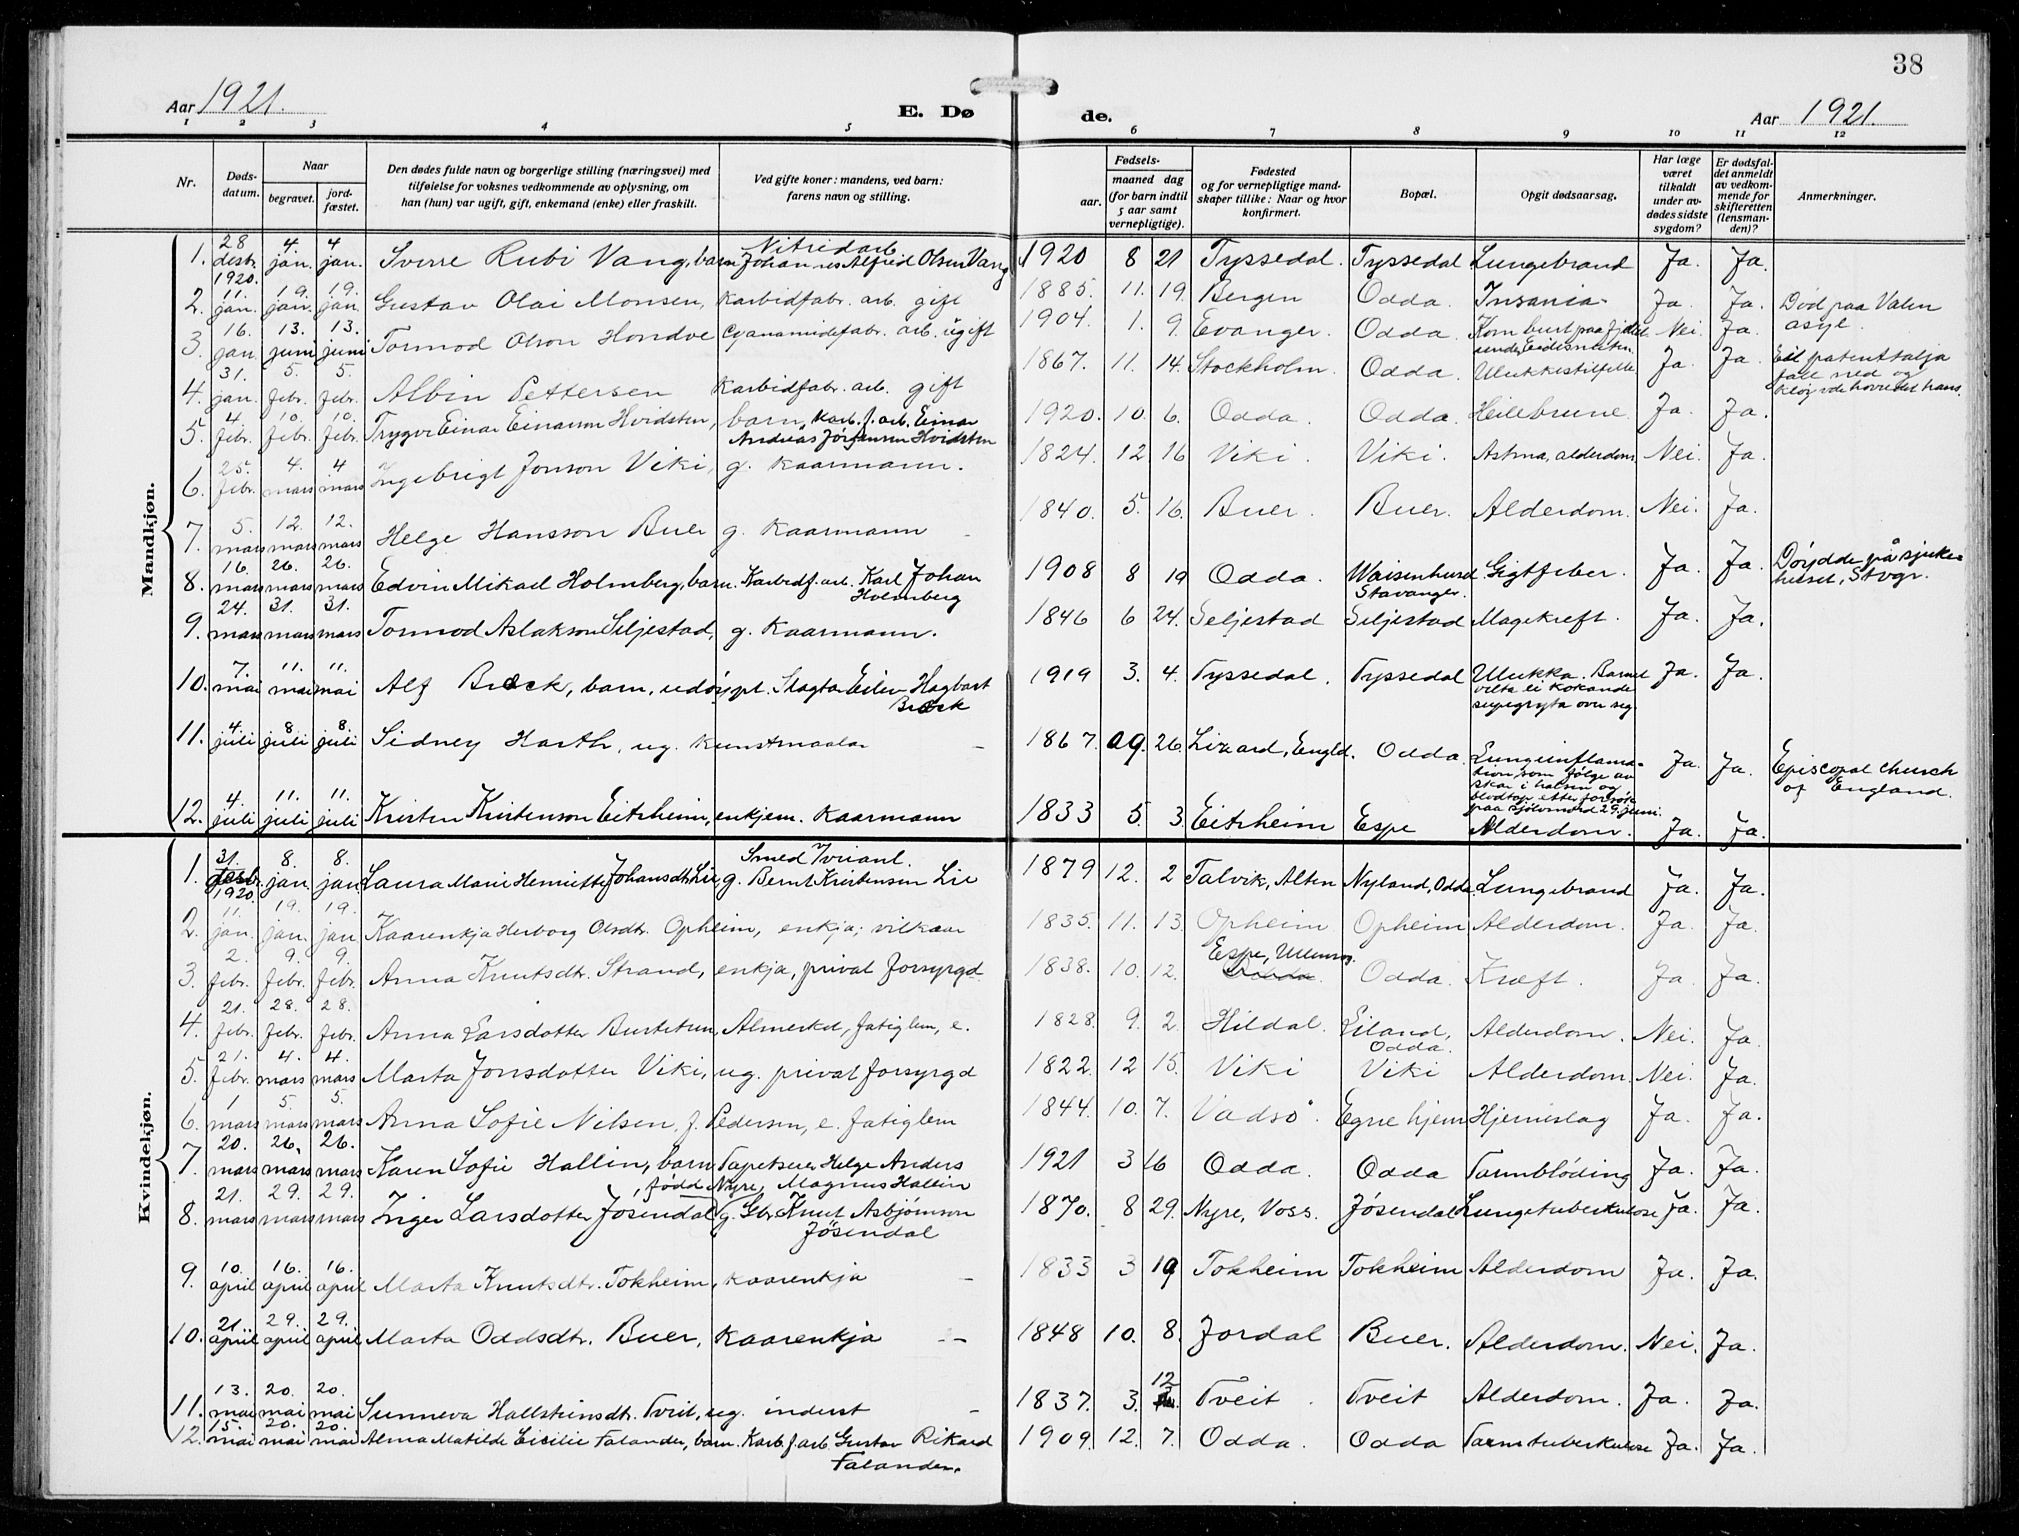 38
Aar 1921.
E. Dø de.
Aar 1921.
1 2 3 4 5 6 7 8 9 10 11 12
Nr. Døds-datum. Naar begravet. jord-fæstet. Den dødes fulde navn og borgerlige stilling (næringsvei) med tilføielse for voksnes vedkommende av oplysning, om han (hun) var ugift, gift, enkemand (enke) eller fraskilt. Ved gifte koner: mandens, ved barn: farens navn og stilling. Fødsels- aar. maaned dag (for barn indtil 5 aar samt vernepligtige). Fødested og for vernepligtige mandskaper tillike: Naar og hvor konfirmert. Bopæl. Opgit dødsaarsag. Har læge været tilkaldt under avdødes sidste sygdom? Er dødsfaldet anmeldt av vedkommende for skifteretten (lensmanden)? Anmerkninger.
Mandkjøn.
1. 28 desbr. 1920. 4. jan. 4 jan. Sverre Rubi Vang, barn Nitridarb. Johannes Alfred Olsen Vang 1920 8 21 Tyssedal. Tyssedal Lungebrand Ja. Ja.
2. 11. jan. 19. jan. 19. jan. Gustav Olai Monsen, Karbidfabr. arb. gift 1885. 11. 19. Bergen Odda. Insania. Ja. Ja. Død paa Valen asyl.
3. 16. jan. 13. juni 13. juni Tormod Olson Hondve Cyanamidefabr. arb. ugift 1904. 1. 9. Evanger. Odda. Kom burt paa fjellet under Eidesnuten. Nei. Ja.
4. 31. jan. 5. febr. 5. febr. Albin Pettersen Karbidfabr. arb. gift 1867. 11. 14. Stockholm. Odda. Ulukkestilfelle Ja. Ja. Eit patenttalja fall ned og hovudet hans.
5. 4. febr. 10. febr. 10. febr. Trygve Einar Einarson Hvidsten, barn, Karb. f. arb. Einar Andreas Jørgensen Hvidsten 1920. 10. 6. Odda. Odda. Heilebrune. Ja. Ja.
6. 25. febr. 4. mars 4 mars Ingebrigt Jonson Viki, g. Kaarmann. 1824. 12 16 Viki. Viki. Astma, alderdom. Nei. Ja.
7. 5. mars 12. mars 12. mars Helge Hansson Buer g. Kaarmann 1840. 5. 16. Buer. Buer. Alderdom. Nei. Ja.
8. 16. mars 26. mars 26. mars Edvin Mikael Holmberg, barn. Karbidf. arb. Karl Johan Holmberg 1908 8 19 Odda. Waisenhused Stavanger. Gigtfeber. Ja. Ja. Døydde på sjukehuset, Stvgr.
9. 24. mars 31. mars 31. mars Tormod Aslakson Seljestad, g. Kaarmann. 1846 6 24. Seljestad Seljestad Magekreft. Ja. Ja.
10. 7. mai 11. mai 11. mai Alf Bræck, barn, udøypt. Slagtar Eilev Hagbart Bræck 1919 3. 4. Tyssedal. Tyssedal Ulukka. Barnet velta ei kokande supegryta over seg. Ja. Ja.
11. 4. juli 8 juli 8. juli Sidney Harth, ug. Kunstmaalar 1867. 09. 26. Lizard, Engld. Odda. Lungeinflamation som følge av skar i halsen og blodtap etter forsøk paa sjølvmord 29. juni. Ja. Ja. Episcopal church of England.
12. 4. juli 11. juli 11. juli Kristen Kristenson Eitrheim, enkjem. Kaarmann 1833 5. 3. Eitrheim Espe Alderdom. Ja. Ja.
Kvindekjøn.
1. 31. desb. 1920. 8. jan. 8. jan. Laura Marie Henriette Johansdtr. Lie g. Smed Bernt Kristensen Lie 1879 12. 2 Talvik, Alten Nyland, Odda. Lungebrand Ja. Ja.
2. 11. jan. 19. jan. 19. jan. Kaarenkja Herborg Olsdtr. Opheim, enkja; vilkaar 1835. 11. 13. Opheim Opheim Alderdom. Ja. Ja.
3. 2. febr. 9. febr. 9. febr. Anna Knutsdtr. Strand, enkja, privat forsyrgd 1838. 10. 12. Espe, Ullensv. Odda. Kræft. Ja. Ja.
4. 21. febr. 28. febr. 28. febr. Anna Larsdotter Bustetun, Almerket, fatiglem, e. 1828. 9. 2. Hildal. Eiland, Odda. Alderdom. Nei. Ja.
5. 21. febr. 4. mars 4. mars Marta Jonsdotter Viki, ug. privat forsyrgd 1822. 12 15. Viki Viki Alderdom. Nei. Ja.
6. 1 mars 5. mars 5. mars Anna Sofie Nilsen, f. Pedersen, e. fatiglem 1844. 10. 7. Vadsø. Egne hjem Hjerneslag Ja. Ja.
7. 20. mars 26. mars 26. mars Karen Sofie Hallin, barn Tapetserer Helge Anders Magnus Hallin 1921 3 16 Odda. Odda Tarmblöding Ja. Ja.
8. 21. mars 29. mars 29. mars Inger Larsdotter Jøsendal, fødd Nyre, g. Gbr. Knut Asbjørnson Jøsendal 1870. 8 29. Nyre, Voss. Jøsendal Lungetuberkulose Ja. Ja.
9. 10. april 16. april 16. april Marta Knutsdtr. Tokheim, kaarenkja 1833 3 19 Tokheim Tokheim Alderdom Ja. Ja.
10. 21. april 29. april 29. april Marta Oddsdtr. Buer, kaarenkja 1848 10. 8. Jordal Buer. Alderdom. Nei. Ja.
11. 13. mai 20. mai 20. mai Sunneva Hallsteinsdtr. Tveit, ug. inderst 1837. 3. 12 Tveit. Tveit Alderdom. Ja. Ja.
12. 15. mai 20. mai 20. mai Alma Matilde Cicilie Falander, barn. Karb. f. arb. Gustav Rikard Falander. 1909. 12. 7. Odda. Odda Tarmtuberkulose Ja. Ja.